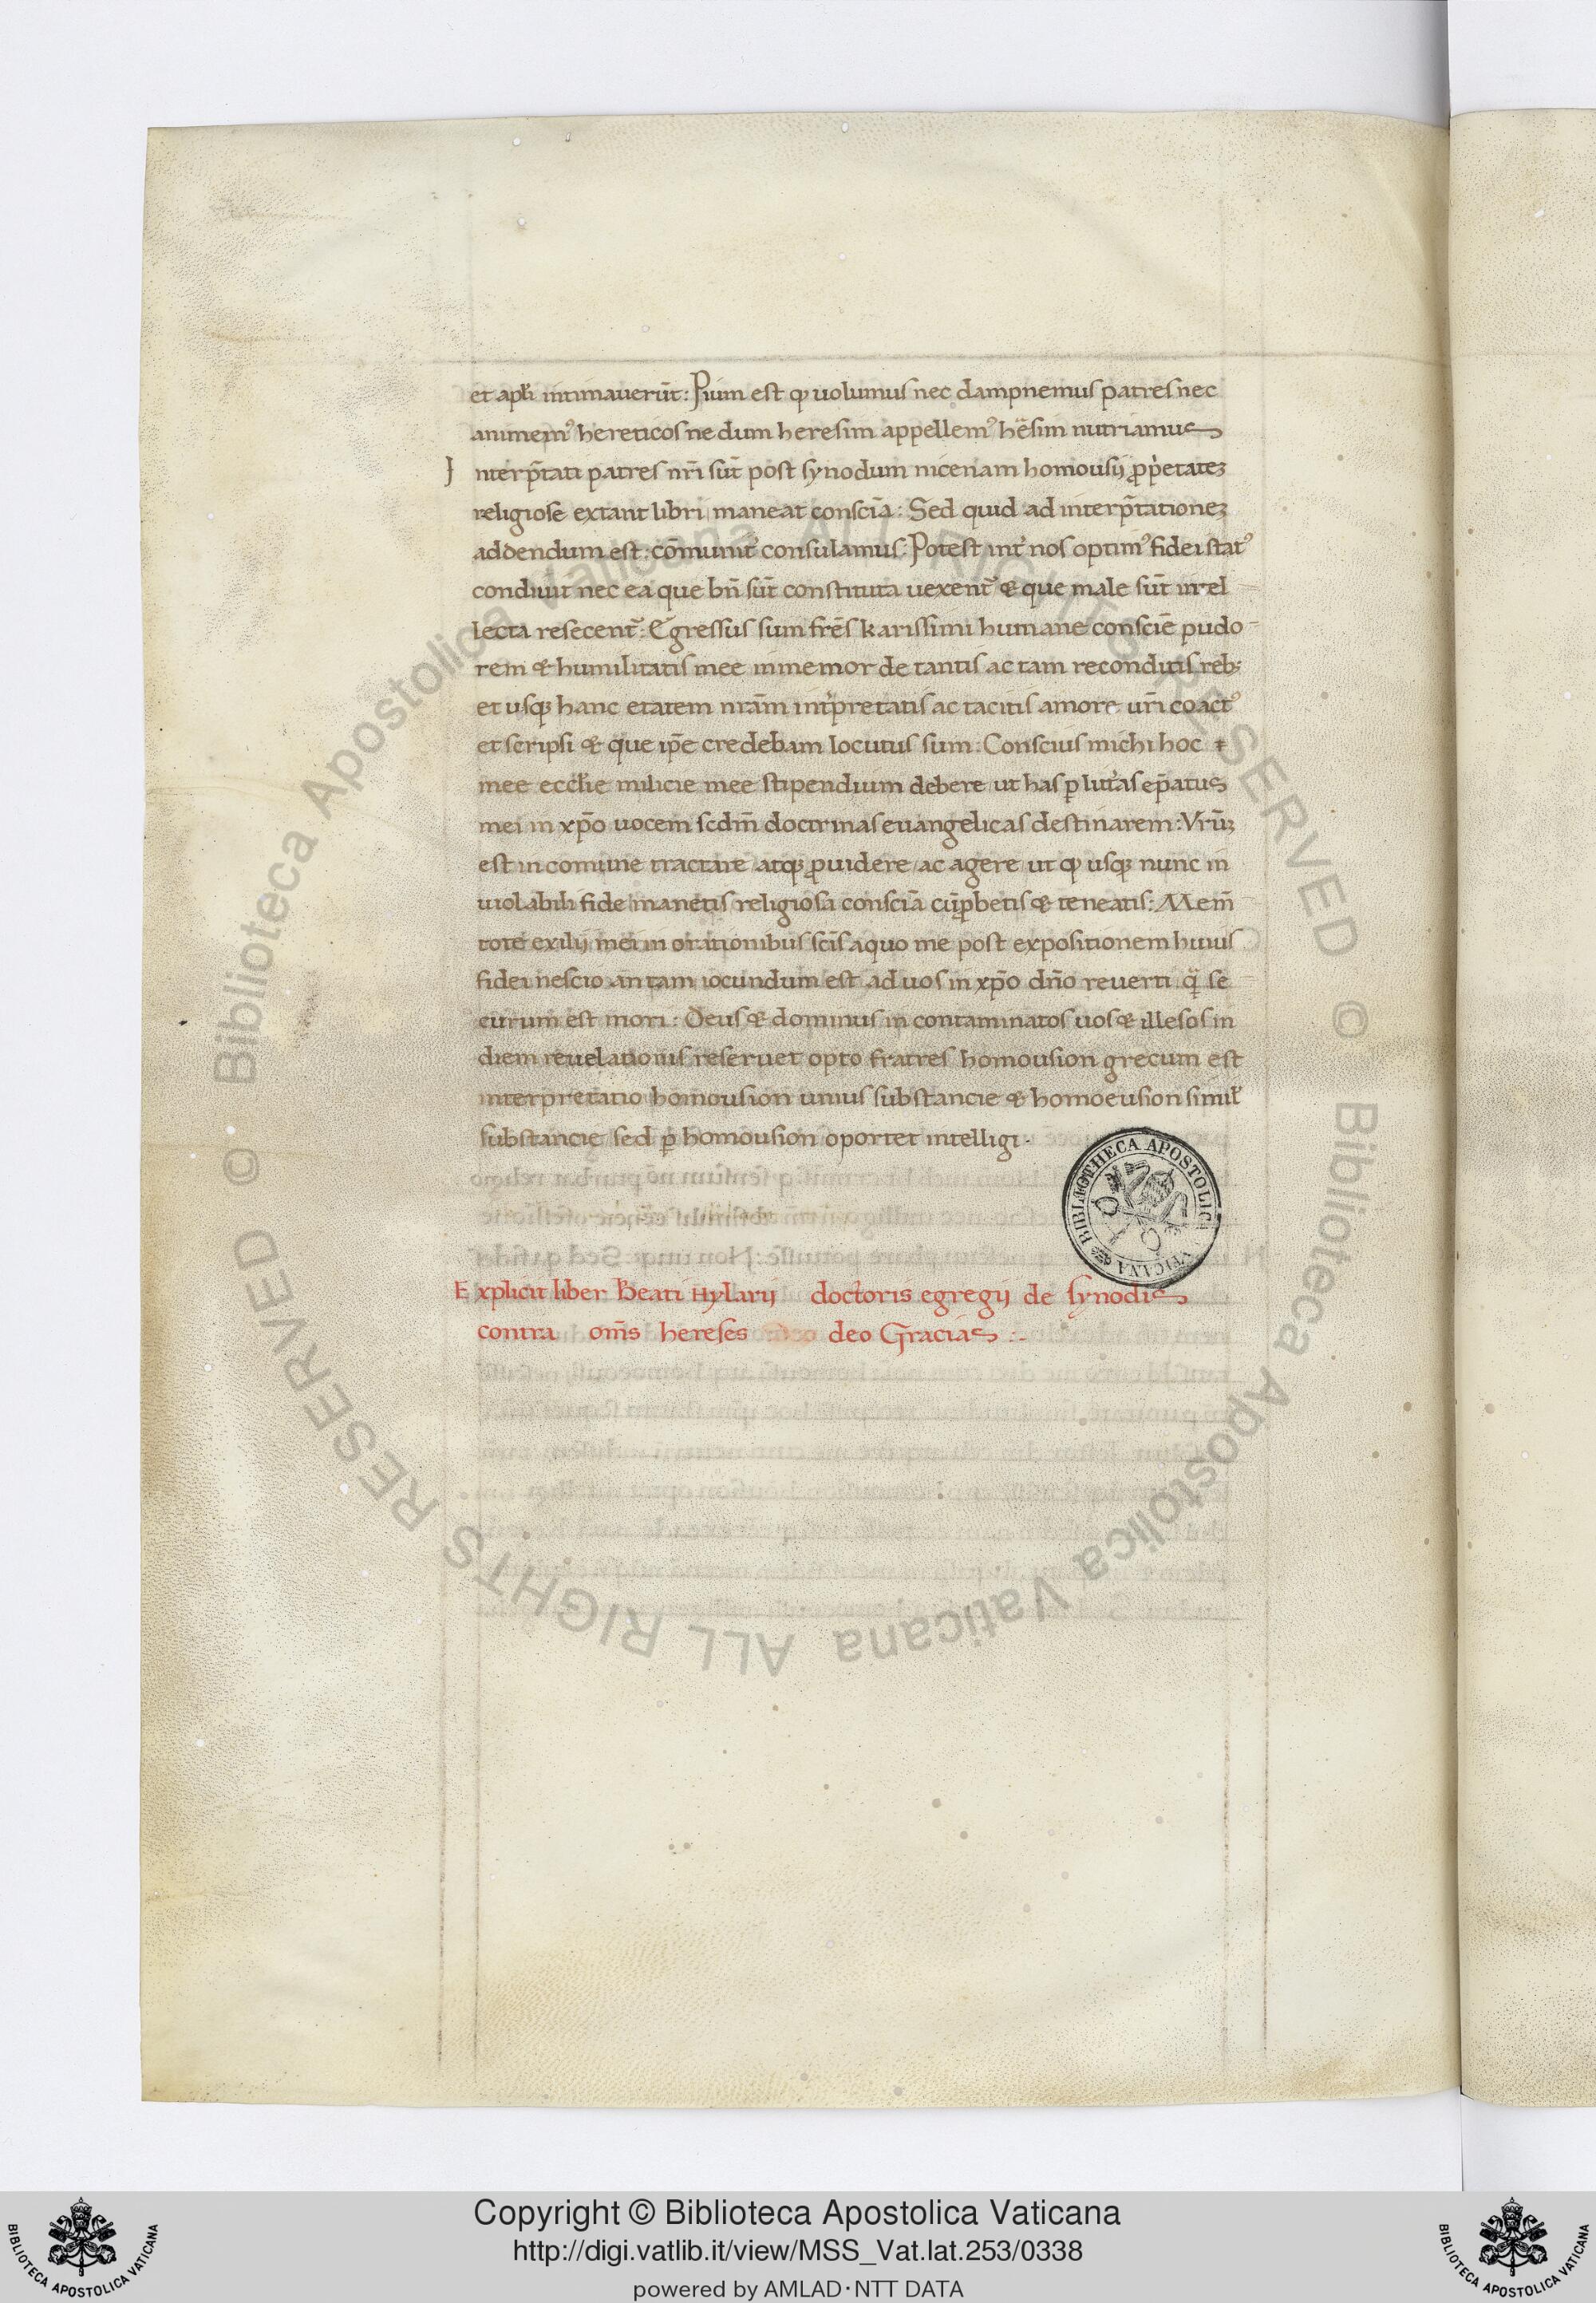 et apl̄i intimaverūt: Pium est ꝙ volumus nec dampnemus patres nec
animemꝰ hereticos ne dum heresim appellemꝰ hēsim nutriamus
Interp̄tati patres nr̄i sūt post synodum nicenam homousij ꝓp̄etateꝫ
religiose extant libri maneat consciā: Sed quid ad interp̄tationeꝫ
addendum est: cōmunit̄ consulamus: Potest int̄ nos optimꝰ fidei statꝰ
condi ut nec ea que bn̄ sūt constituta vexent̄ & que male sūt intel
lecta resecent̄: Egressus sum frēs karissimi humane consciē pudo
rem & humilitatis mee inmemor de tantis ac tam reconditis reb;
et usqꝫ hanc etatem nrām int̄pretatis ac tacitis amore vr̄i coactꝰ
et scripsi & que ip̄e credebam locutus sum: Conscius michi hoc
mee eccl̄ie milicie mee stipendium debere ut has ꝑ litt̄as ep̄atus
mei in xp̄o vocem scdm̄ doctrinas evangelicas destinarem: Vr̄ūꝫ
est in comune tractare atqꝫ ꝓvidere ac agere ut ꝙ usqꝫ nunc in
violabili fide manētis religiosa consciā cū ꝓbetis & teneatis: Mem̄
tote exilij mei in orationibus scīs a quo me post expositionem huius
fidei nescio an tam iocundum est ad vos in xp̄o dn̄o reverti q̄ se
curum est mori: Deus & dominus in contaminatos vos & illesos in
diem revelationis reservet opto fratres homousion grecum est
interpretatio homousion unius substancie & homoeusion simil̄
substancie sed ꝑ homousion oportet intelligi.
Explicit liber Beati Hylarij doctoris egregij de synodis
contra om̄s hereses deo Gracias :.
BIBLIOTHECA APOSTOLICA VATICANA
© Biblioteca Apostolica Vaticana ALL RIGHTS RESERVED © Biblioteca Apostolica Vaticana ALL RIGHTS RESERVED
Copyright © Biblioteca Apostolica Vaticana
http://digi.vatlib.it/view/MSS_Vat.lat.253/0338
powered by AMLAD·NTT DATA
BIBLIOTECA APOSTOLICA VATICANA
BIBLIOTECA APOSTOLICA VATICANA